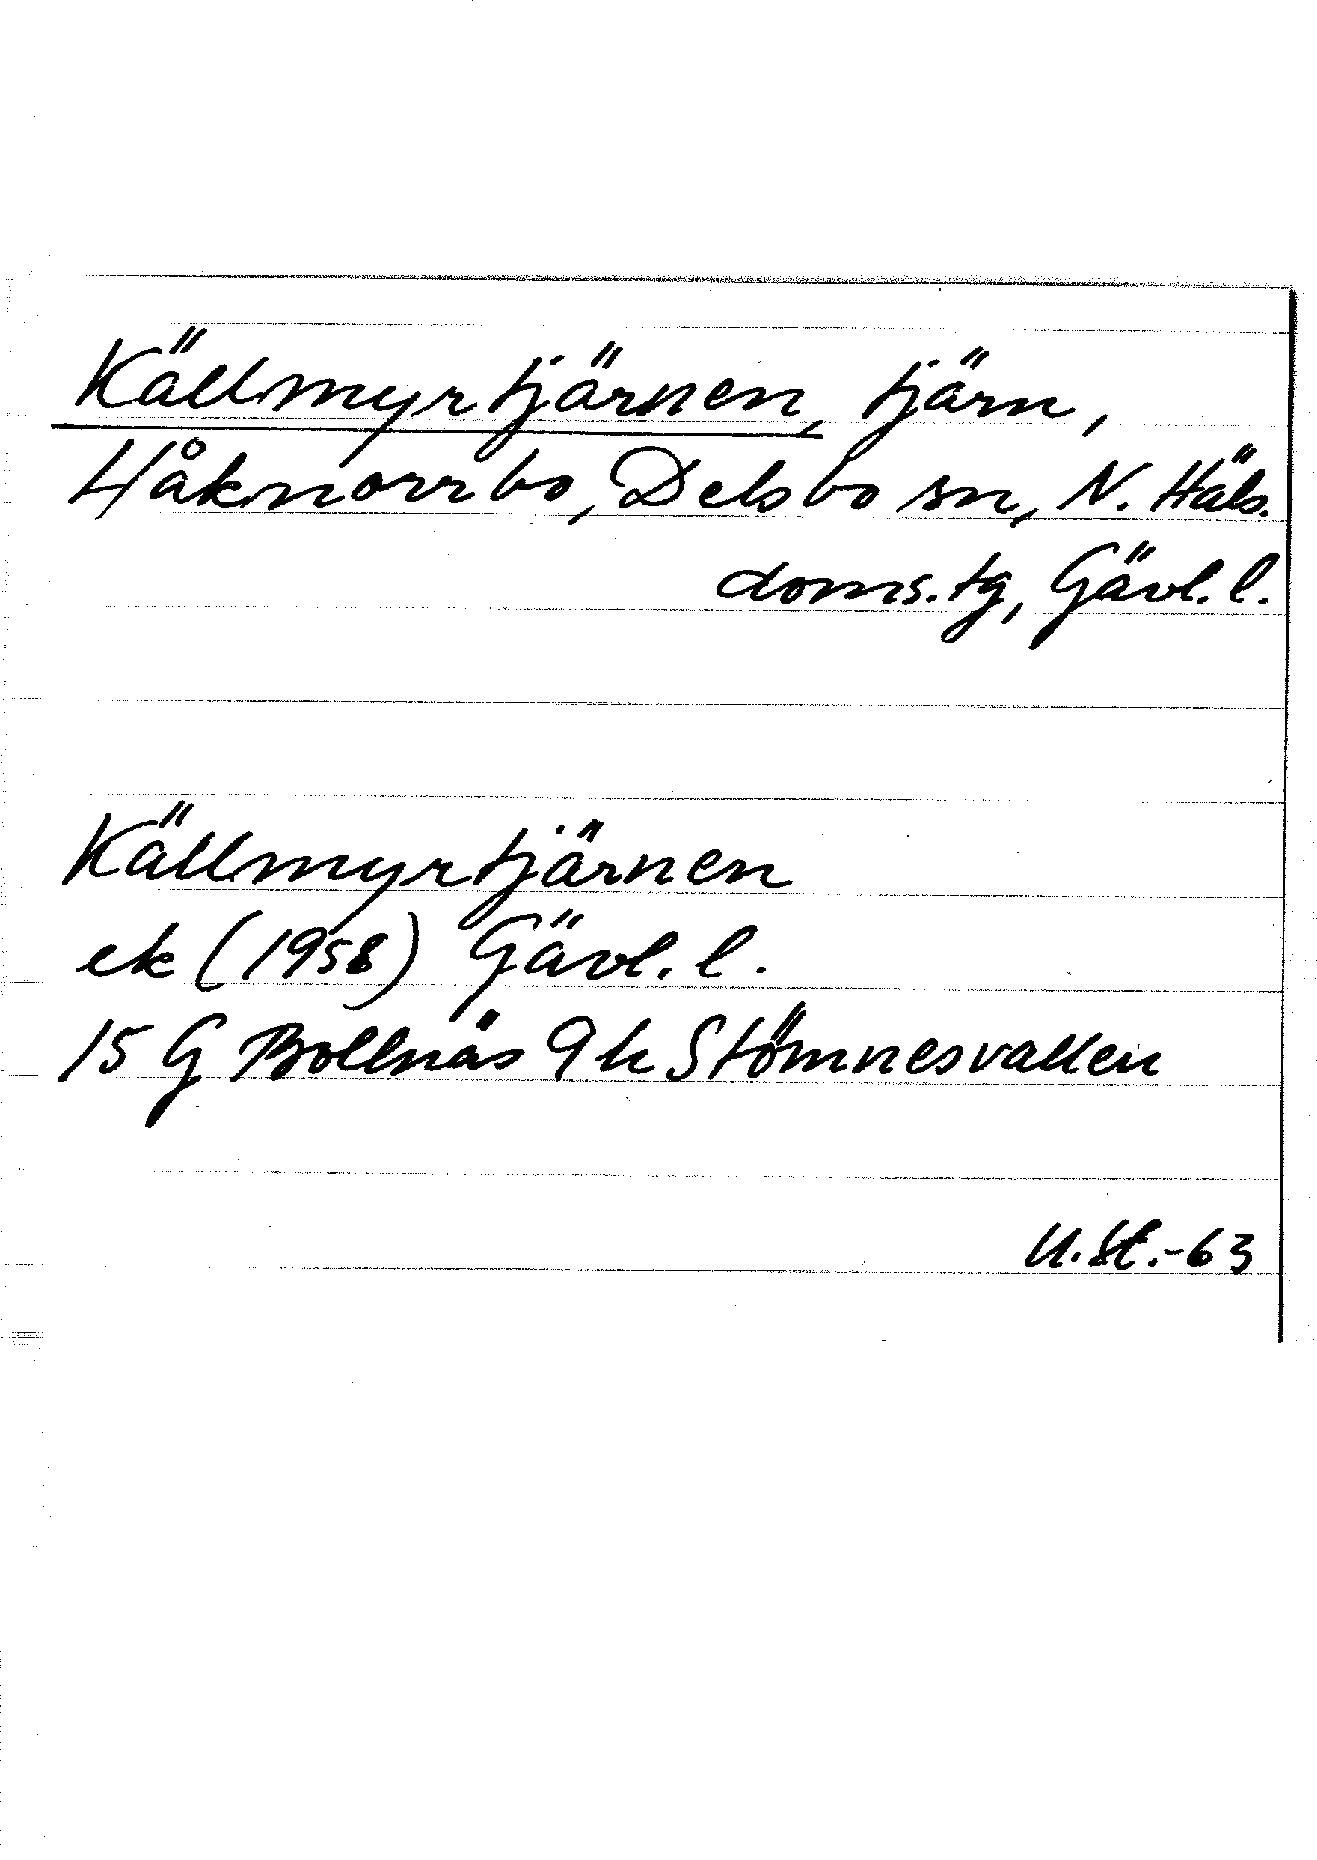 Källmyrtjärnen, tjärn,
Håknorrbo, Delsbo sn, N. Häls.
doms.tg, Gävl. l.
Källmyrtjärnen
ek (1958) Gävl. l.
15 G Bollnäs 9 h Stömnesvallen
U. St.-63